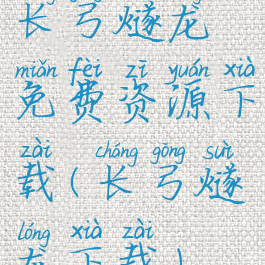 长弓燧龙
miǎn fèi zī yuán xià
免费资源下
zài cháng gōng suì
载(长弓燧
lóng xià zài
龙下载)